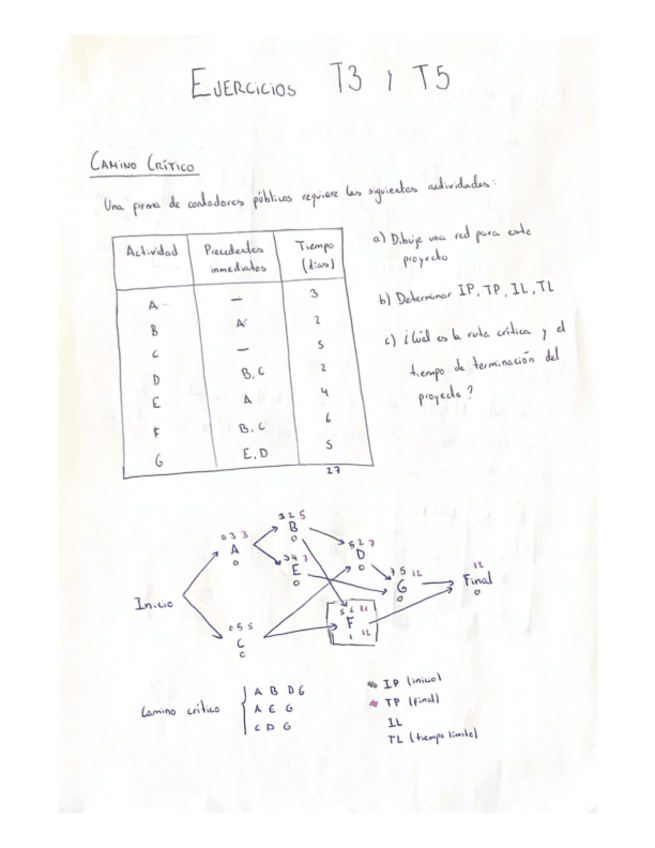 EJERCICIOS T3 Y T5
CAMINO CRÍTICO
Una firma de contadores públicos requiere las siguientes actividades:
Actividad Precedentes inmediatos Tiempo (días)
A — 3
B A 2
C — 5
D B, C 2
E A 4
F B, C 6
G E, D 5
27
a) Dibuje una red para este
proyecto
b) Determinar IP, TP, IL, TL
c) ¿Cuál es la ruta crítica y el
tiempo de terminación del
proyecto?
3 2 5
B
0
0 3 3
A
0
5 2 7
D
0
3 4 7
E
0
7 5 12
G
0
12
Final
0
Inicio
5 6 11
F
1 12
0 5 5
C
Camino crítico
A B D G
A E G
C D G
IP (inicio)
TP (Final)
IL
TL (tiempo límite)